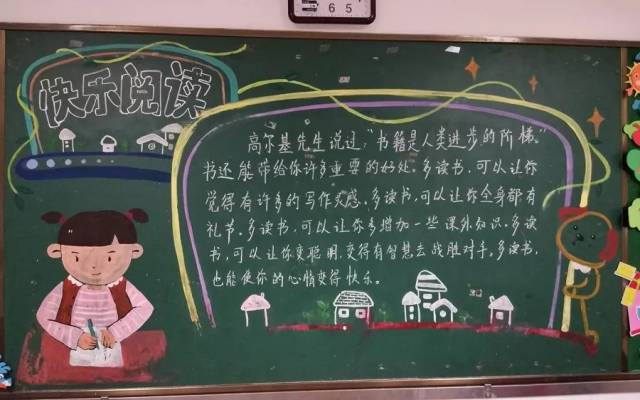 6 5
快乐阅读
高尔基先生说过,"书籍是人类进步的阶梯。"
书还能带给你许多重要的好处。多读书,可以让你
觉得有许多的写作灵感。多读书,可以让你全身都有
礼节。多读书,可以让你多增加一些课外知识。多读
书,可以让你变聪明,变得有智慧去战胜对手。多读书,
也能使你的心情变得快乐。